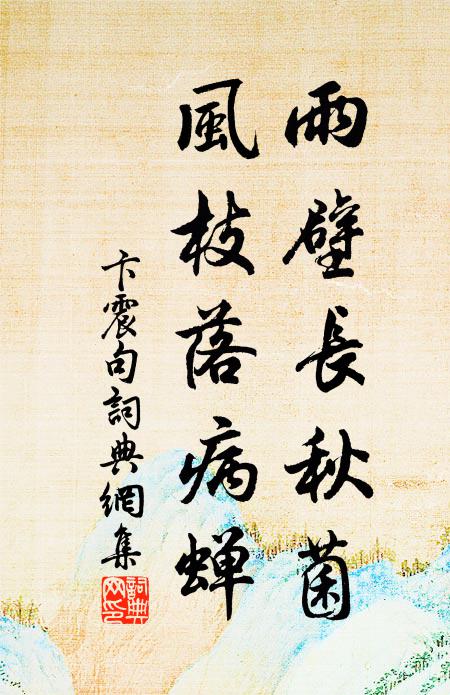 雨壁長秋菌
風枝落病蝉
卞震句詞典網集
詞典网印